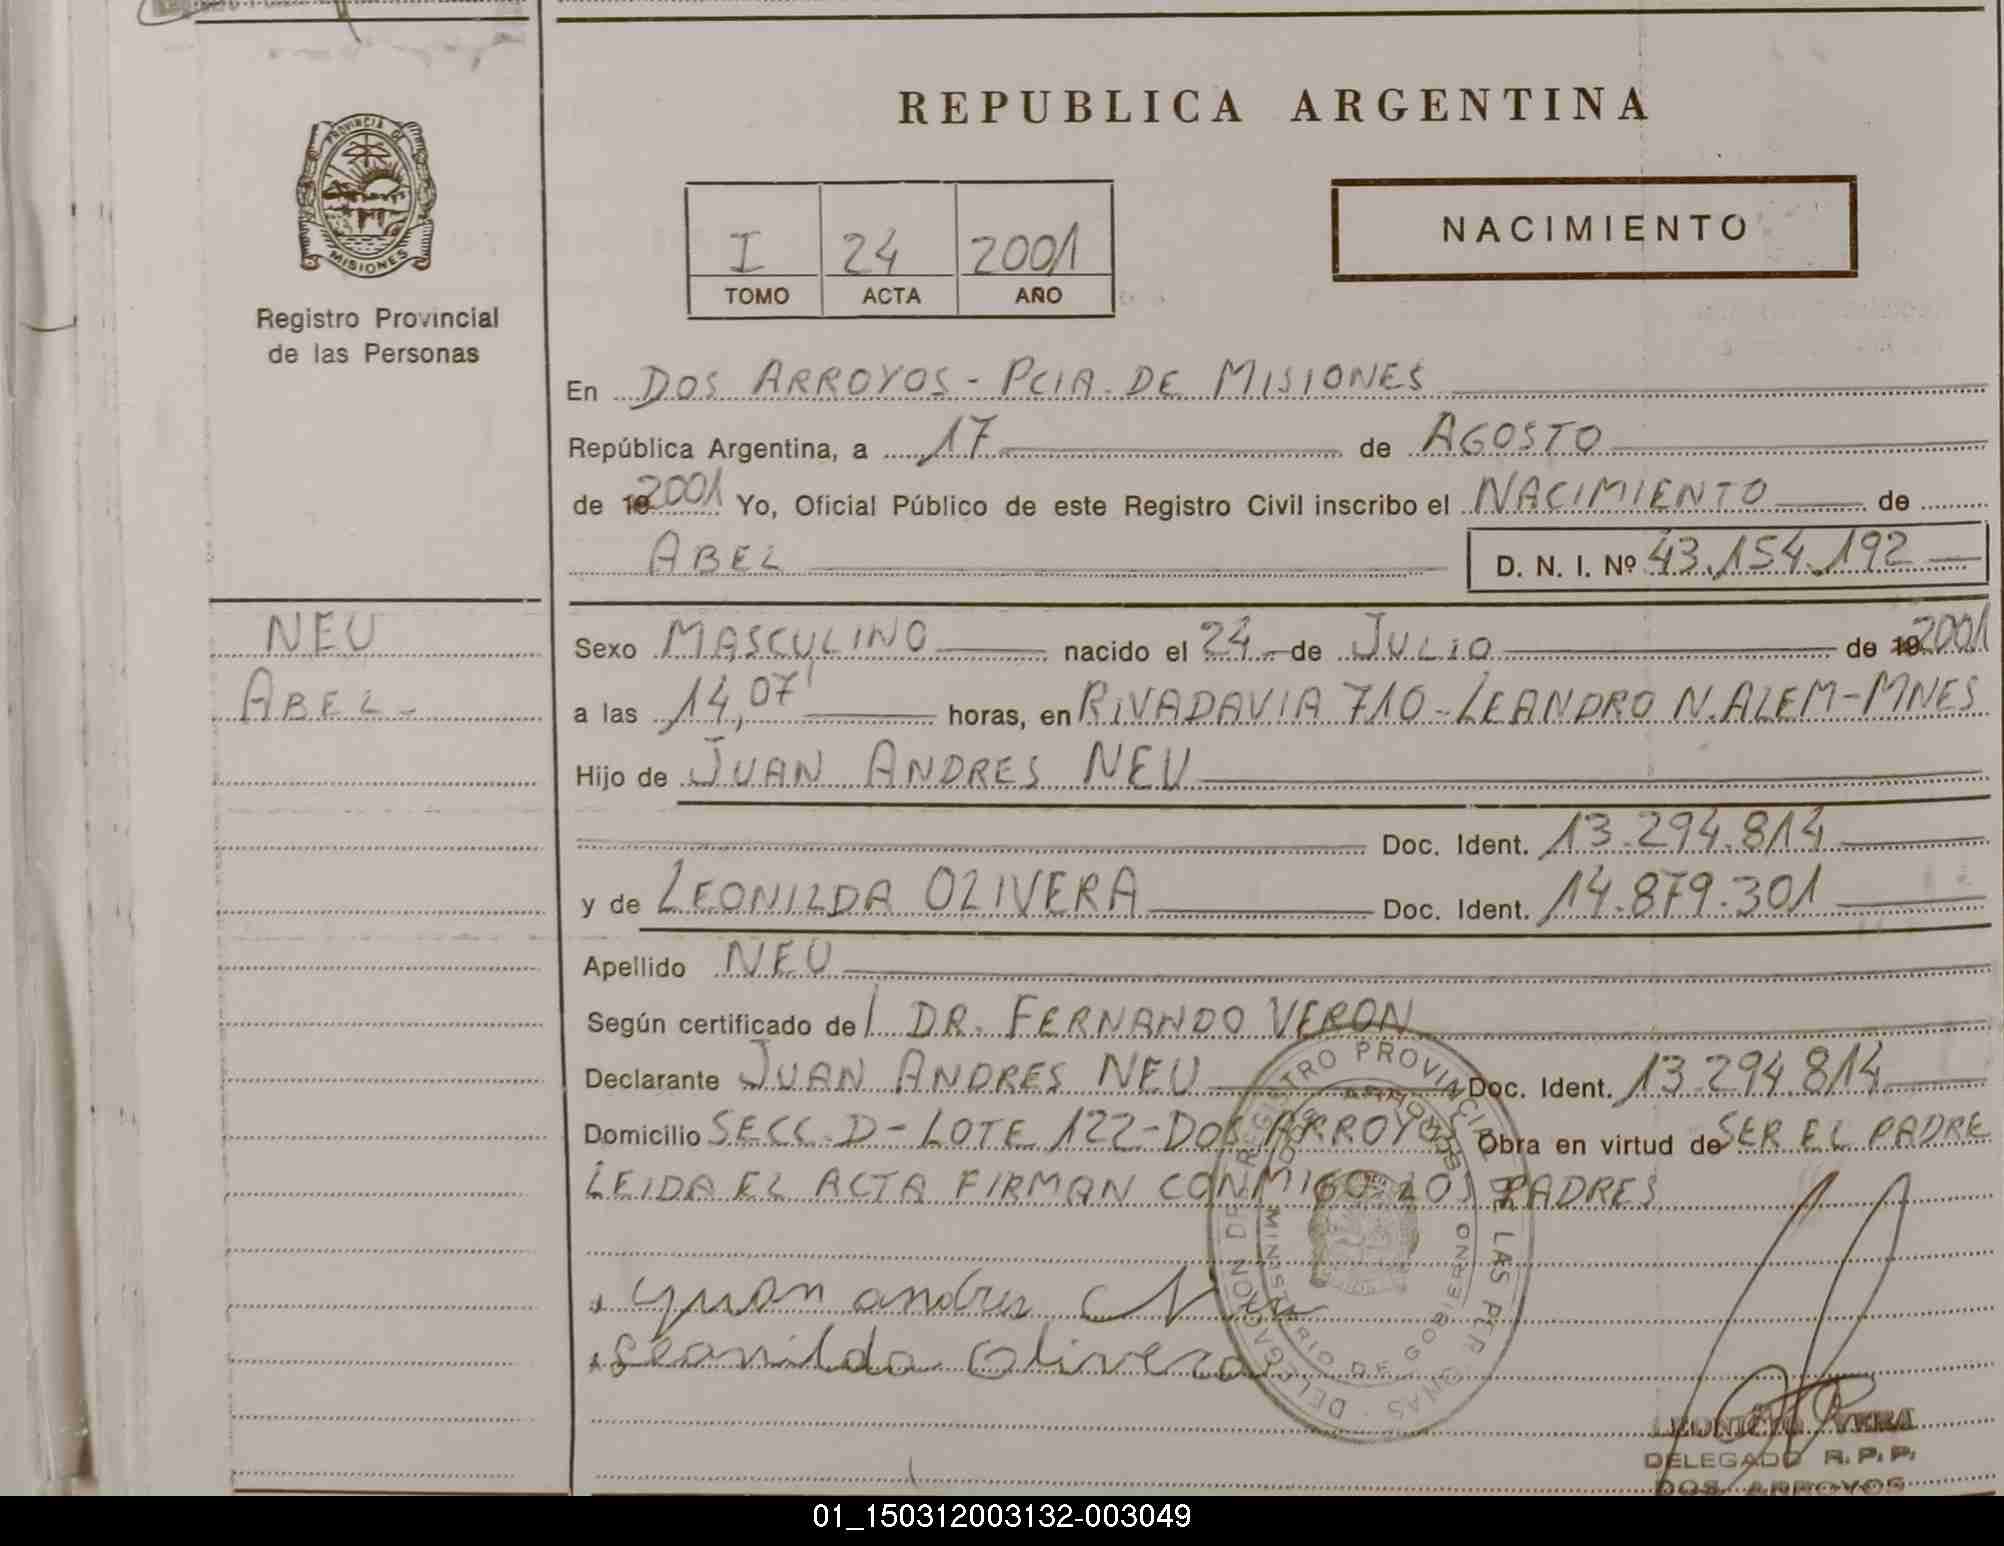 REPUBLICA ARGENTINA
PROVINCIA DE
MISIONES
Registro Provincial
de las Personas
I 24 2001
TOMO ACTA AÑO
NACIMIENTO
En DOS ARROYOS - PCIA. DE MISIONES
República Argentina, a 17 de AGOSTO
de 2001 Yo, Oficial Público de este Registro Civil inscribo el NACIMIENTO de
ABEL D. N. I. Nº 43.154.192
NEU
ABEL -
Sexo MASCULINO nacido el 24 de JULIO de 2001
a las 14,07' horas, en RIVADAVIA 710 - LEANDRO N. ALEM - MNES
Hijo de JUAN ANDRES NEU
Doc. Ident. 13.294.814
y de LEONILDA OLIVERA Doc. Ident. 14.879.301
Apellido NEU
Según certificado del DR. FERNANDO VERON
Declarante JUAN ANDRES NEU Doc. Ident. 13.294.814
Domicilio SECC. D - LOTE 122 - DOS ARROYOS Obra en virtud de SER EL PADRE
LEIDA EL ACTA FIRMAN CONMIGO LOS PADRES
Juan andres Neu
Leonilda Olivera
DELEGACION DE REGISTRO PROVINCIAL DE LAS PERSONAS
DOS ARROYOS
MINISTERIO DE GOBIERNO
VERA
DELEGADO R.P.P.
DOS ARROYOS
01_150312003132-003049